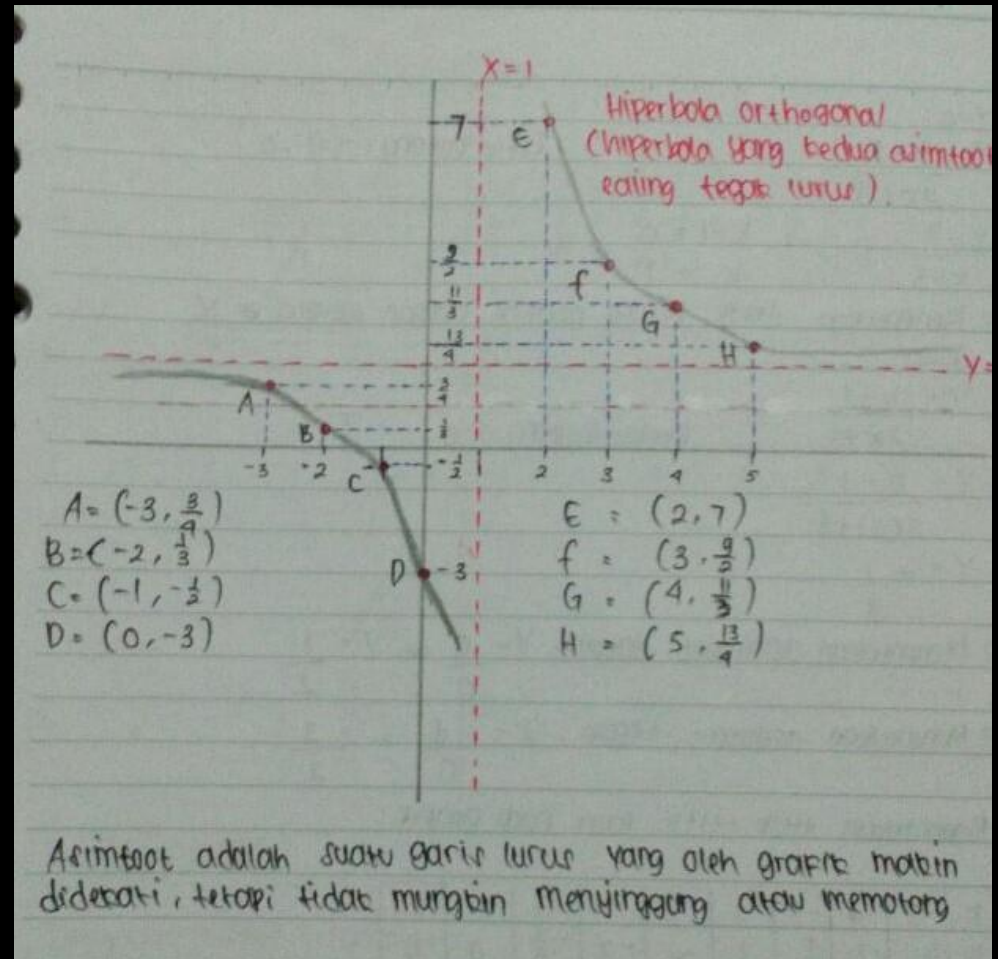 X=1
7
E
Hiperbola orthogonal
(hiperbola yang kedua asimtoot
saling tegak lurus).
9/2
f
11/3
G
13/4
H
Y=
3/4
A
1/3
B
-3 -2
C
-1/2
2 3 4 5
A = (-3, 3/4)
B = (-2, 1/3)
C = (-1, -1/2)
D = (0, -3)
D -3
E = (2, 7)
f = (3, 9/2)
G = (4, 11/3)
H = (5, 13/4)
Asimtoot adalah suatu garis lurus yang oleh grafik makin
didekati, tetapi tidak mungkin menyinggung atau memotong